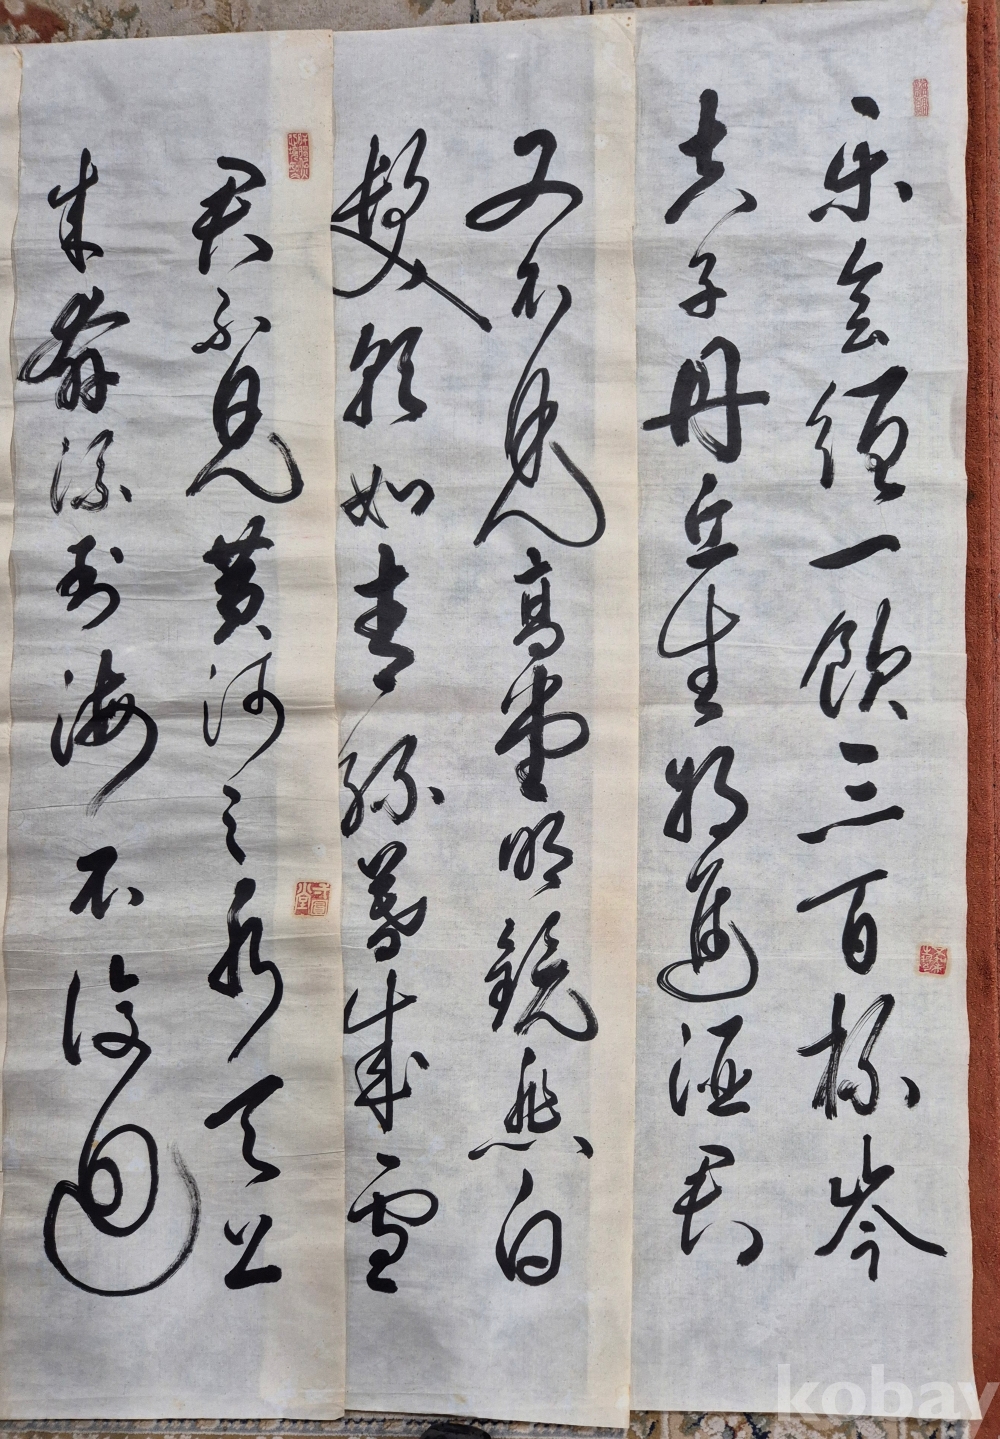 樂會須一飲三百杯岑
夫子丹丘生將進酒君
又不見高堂明鏡悲白
髮朝如青絲暮成雪
君不見黃河之水天上
來奔流到海不復回
kobay